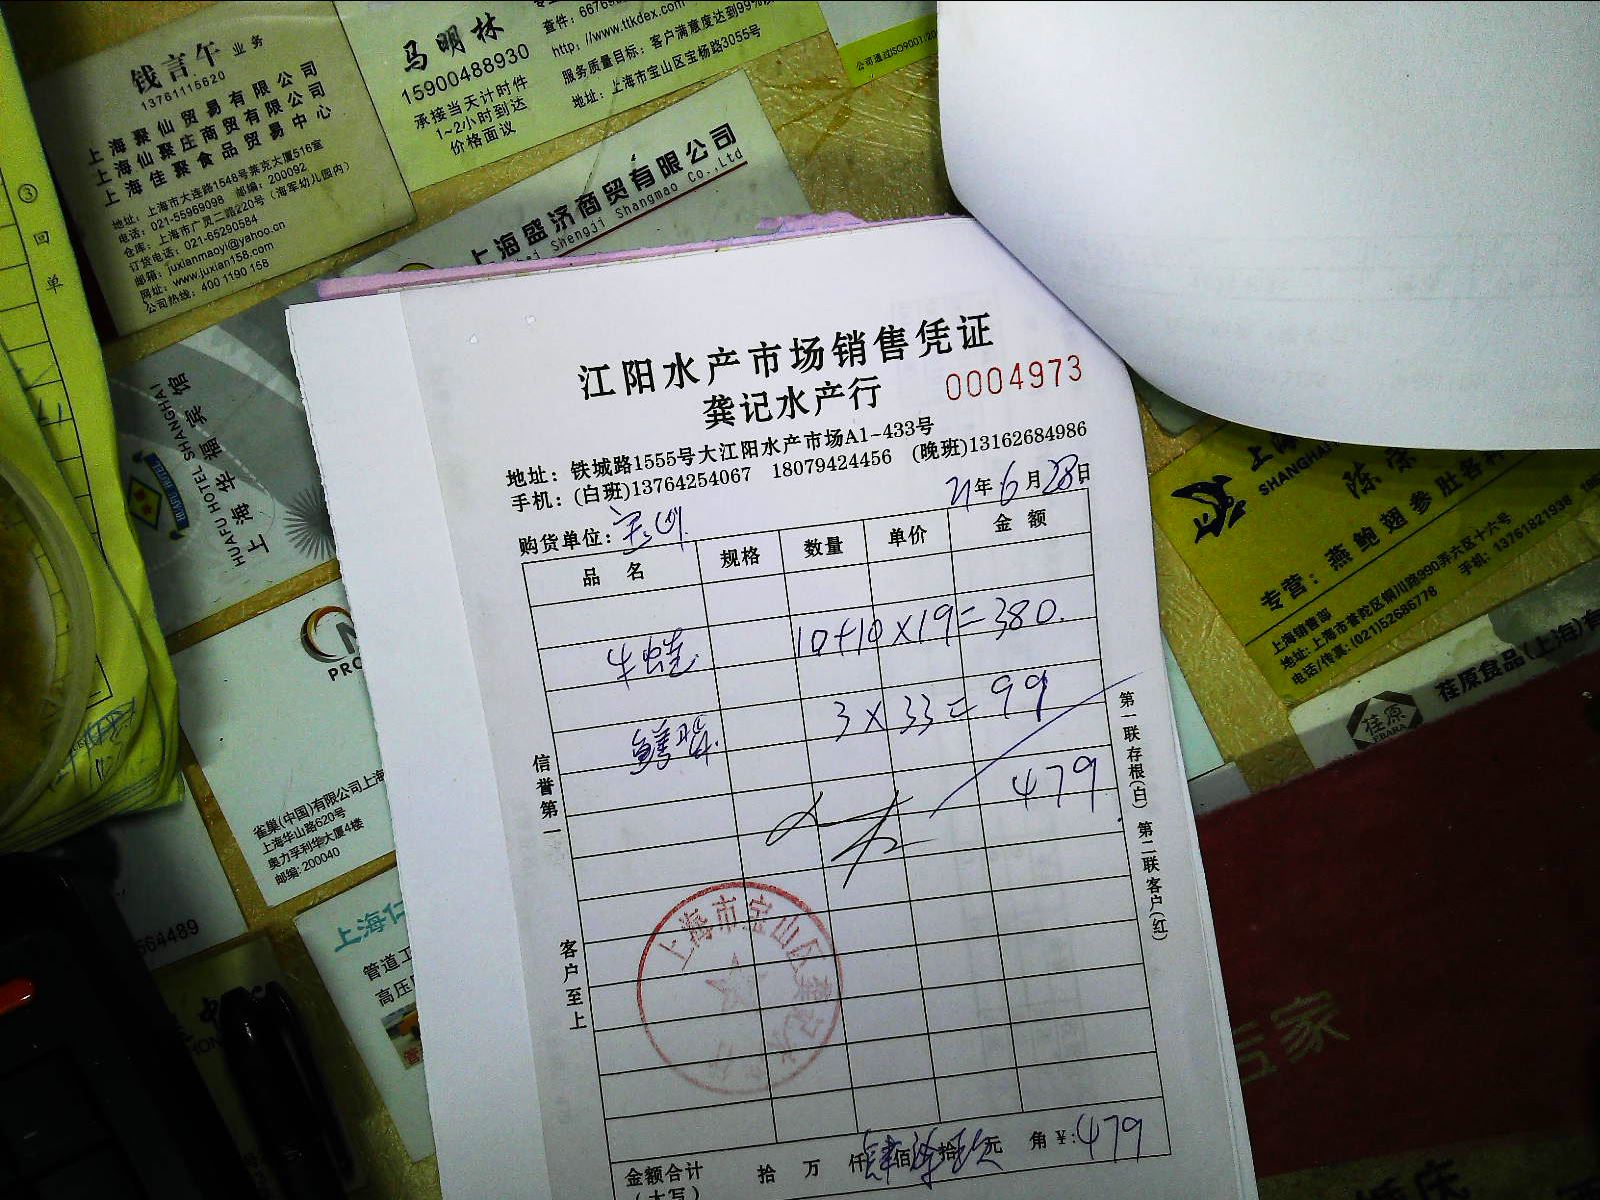 钱言午 业务
13761115620
上海聚仙贸易有限公司
上海仙聚庄商贸有限公司
上海佳聚食品贸易中心
地址：上海市大连路1548号莱克大厦516室
电话：021-55969098 邮编：200092
仓库：上海市广灵二路220号（海军幼儿园内）
订货电话：021-65290584
邮箱：juxianmaoyi@yahoo.cn
网址：www.juxian158.com
公司热线：400 1190 158
马明林
15900488930
承接当天计时件
1~2小时到达
价格面议
http://www.ttkdex.com
服务质量目标：客户满意度达到99%
地址：上海市宝山区宝杨路3055号
公司通过ISO9001/20
上海盛济商贸有限公司
Shengji Shangmao Co.,Ltd
③
回
单
上海华福宾馆
HUAFU HOTEL SHANGHAI
HUAFU HOTEL
PRO
雀巢(中国)有限公司上海
上海华山路620号
奥力孚利华大厦4楼
邮编: 200040
564489
上海仁
管道工
高压
江阳水产市场销售凭证
龚记水产行
0004973
地址：铁城路1555号大江阳水产市场A1-433号
手机：(白班)13764254067 18079424456 (晚班)13162684986
21年6月28日
购货单位：
品名 规格 数量 单价 金额
牛蛙 10+10×19=380.
3×33=99
479
信誉第一
客户至上
第一联存根(白) 第二联客户(红)
上海市宝山区龚记水产行
金额合计 拾 万 仟肆佰柒拾玖元 角 ¥:479
(大写)
上海
SHANGHAI
陈
专营：燕鲍翅参肚各种
上海销售部
地址: 上海市普陀区铜川路990弄六区十六号
电话/传真: (021)52686778 手机: 13761821938
荏原
EBARA
荏原食品(上海)有